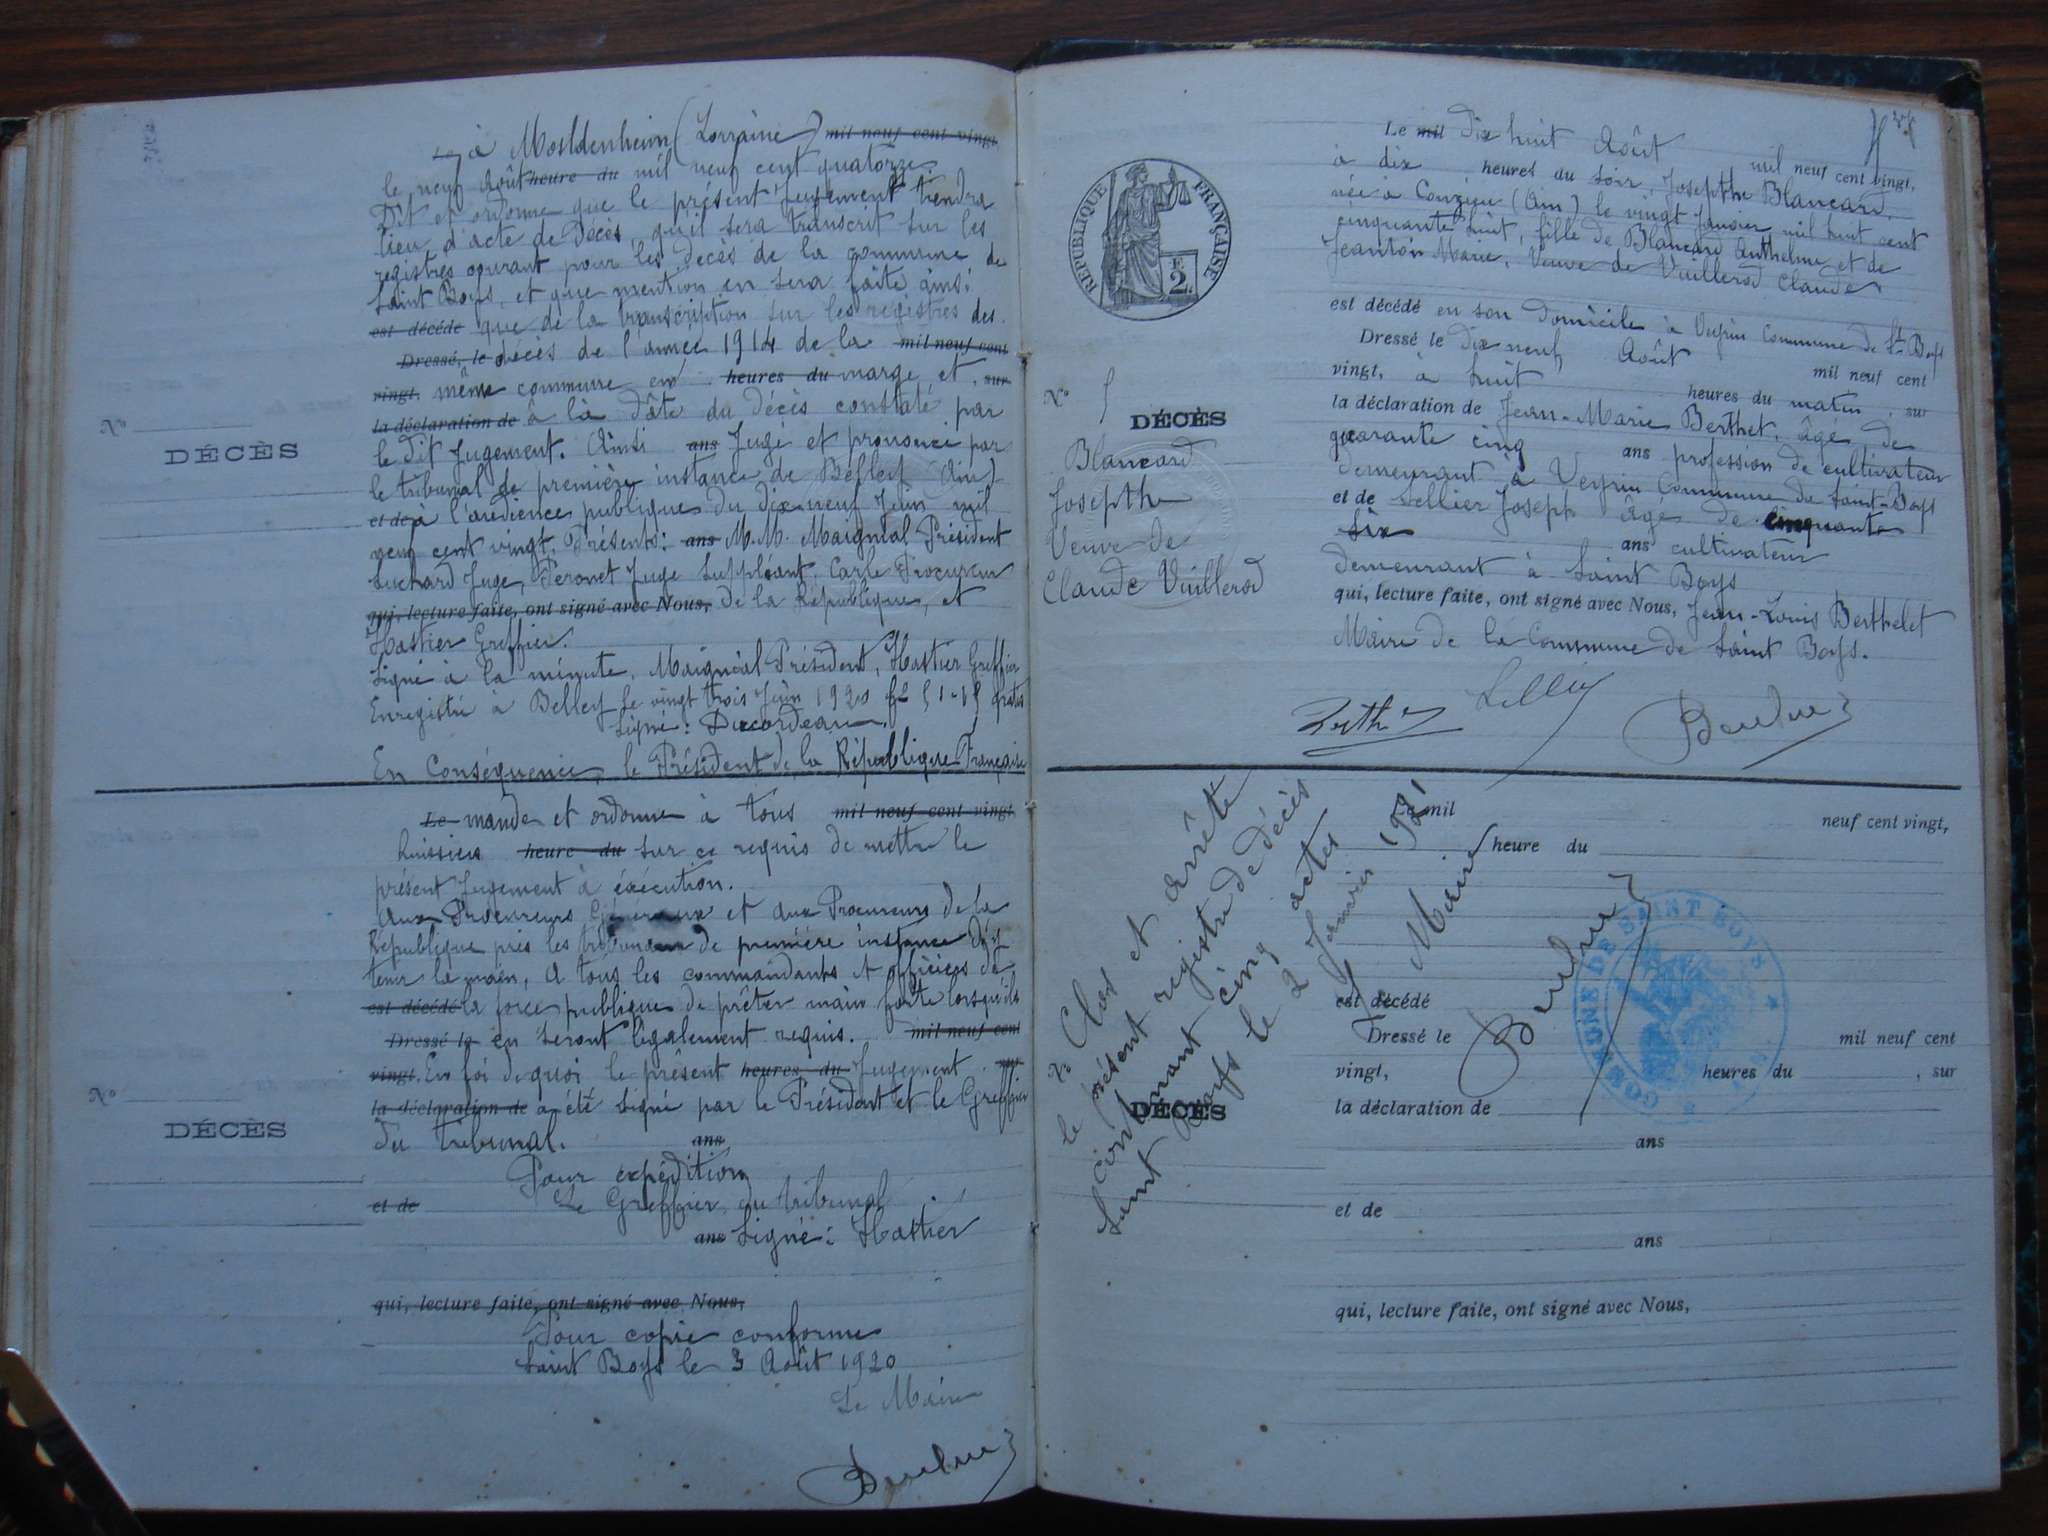 à Mosldenheim (Lorraine) mil neuf cent vingt,
le neuf Août heure du mil neuf cent quatorze.
Dit et ordonne que le présent Jugement tiendra
lieu d'acte de Décès, qu'il sera transcrit sur les
registres courant pour les décès de la commune de
Saint Boys, et que mention en sera faite ainsi
est décédé que de la transcription sur les registres des
Dressé, le décès de l'année 1914 de la mil neuf cent
vingt, même commune en heures du marge, et, sur
la déclaration de à la date du décès constaté par
le dit Jugement. Ainsi ans Jugé et prononcé par
le tribunal de première instance de Belley (Ain)
et de à l'audience publique du dix neuf Juin mil
neuf cent vingt. Présents: ans M.M. Maignial Président
Luchard Juge, Peronet Juge Suppléant, Carle Procureur
qui, lecture faite, ont signé avec Nous, de la République, et
Hastier Greffier.
Signé à la minute, Maignial Président, Hastier Greffier
Enregistré à Belley le vingt trois Juin 1920 gratis
Signé: Ducordeau.
En Conséquence, le Président de la République Française
Nº
DÉCÈS
Le mande et ordonne à tous mil neuf cent vingt
huissiers heure du sur ce requis de mettre le
présent Jugement à exécution.
Aux Procureurs Généraux et aux Procureurs de la
République près les tribunaux de première instance d'y
tenir la main, A tous les commandants et officiers de
est décédé la force publique de prêter main forte lorsqu'ils
Dressé le en seront légalement requis. mil neuf cent
vingt. En foi de quoi le présent heures du Jugement sur
la déclaration de a été signé par le Président et le Greffier
du tribunal. ans
Pour expédition
et de Le Greffier du tribunal
ans Signé: Hastier
qui, lecture faite, ont signé avec Nous,
Pour copie conforme
Saint Boys le 3 Août 1920
Le Maire
Nº
DÉCÈS
RÉPUBLIQUE FRANÇAISE
F.
2.
Le mil Dix huit Août mil neuf cent vingt,
à dix heures du soir, Josepthe Blancard,
née à Conzieu (Ain) le vingt Janvier mil huit cent
cinquante huit, fille de Blancard Anthelme et de
Jeanton Marie, Veuve de Vuillerod Claude
est décédé en son domicile à Veyrin Commune de St Boys
Dressé le Dix neuf Août mil neuf cent
vingt, à huit heures du matin, sur
la déclaration de Jean-Marie Berthet, âgé de
quarante cinq ans profession de cultivateur
demeurant à Veyrin Commune de Saint-Boys
et de Sellier Joseph âgé de cinquante
six ans cultivateur
demeurant à Saint Boys
qui, lecture faite, ont signé avec Nous, Jean-Louis Berthelet
Maire de la Commune de Saint Boys.
Nº 5
DÉCÈS
Blancard
Josepthe
Veuve de
Claude Vuillerod
Clos et arrêté
le présent registre de décès
contenant cinq actes
Saint Boys le 2 Janvier 1921
Le Maire
Le mil neuf cent vingt,
heure du
est décédé
Dressé le mil neuf cent
vingt, heures du , sur
la déclaration de
ans
et de
ans
qui, lecture faite, ont signé avec Nous,
DÉCÈS
COMMUNE DE SAINT BOYS